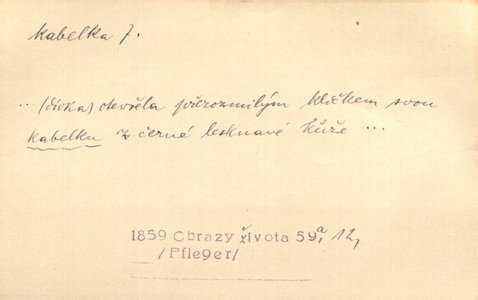 kabelka f.
... (dívka) otevřela přerozmilým klíčkem svou
kabelku z černé lesknavé kůže ...
1859 Obrazy života 59, a 12,
/Pfleger/